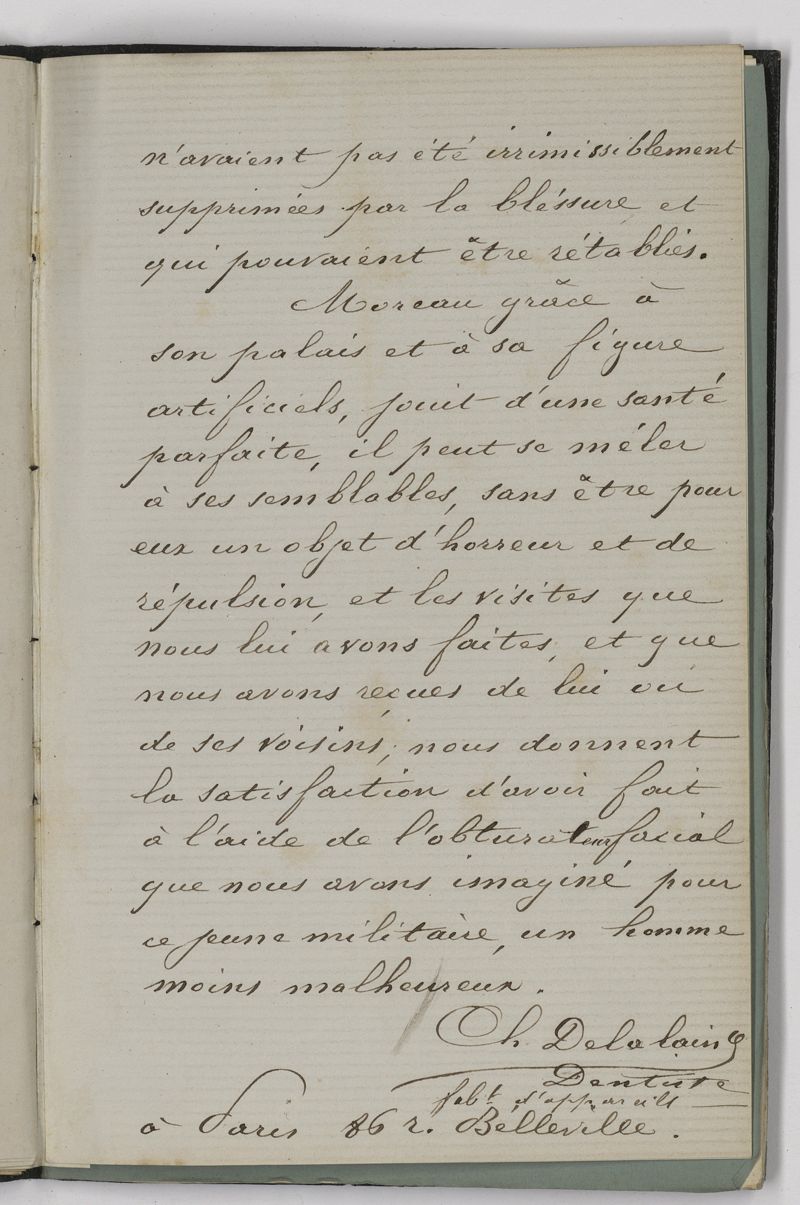 n'avaient pas été irrimissiblement
supprimées par la bléssure et
qui pouvaient être rétablies.
Moreau grâce à
son palais et à sa figure
artificiels, jouit d'une santé
parfaite, il peut se mêler
à ses semblables, sans être pour
eux un objet d'horreur et de
répulsion, et les visites que
nous lui avons faites, et que
nous avons reçues de lui ou
de ses voisins, nous donnent
la satisfaction d'avoir fait
à l'aide de l'obturateur facial
que nous avons imaginé pour
ce jeune militaire, un homme
moins malheureux.
Ch. Delalain
Dentiste
fabt d'appareils
à Paris 86 r. Bélleville.